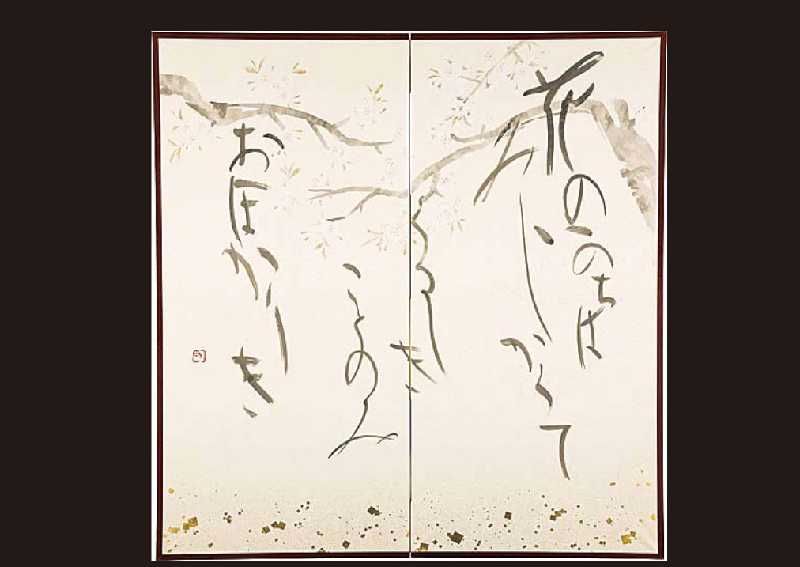 花のいのちは
みじかくて
くるしき
ことのみ
おほかりき